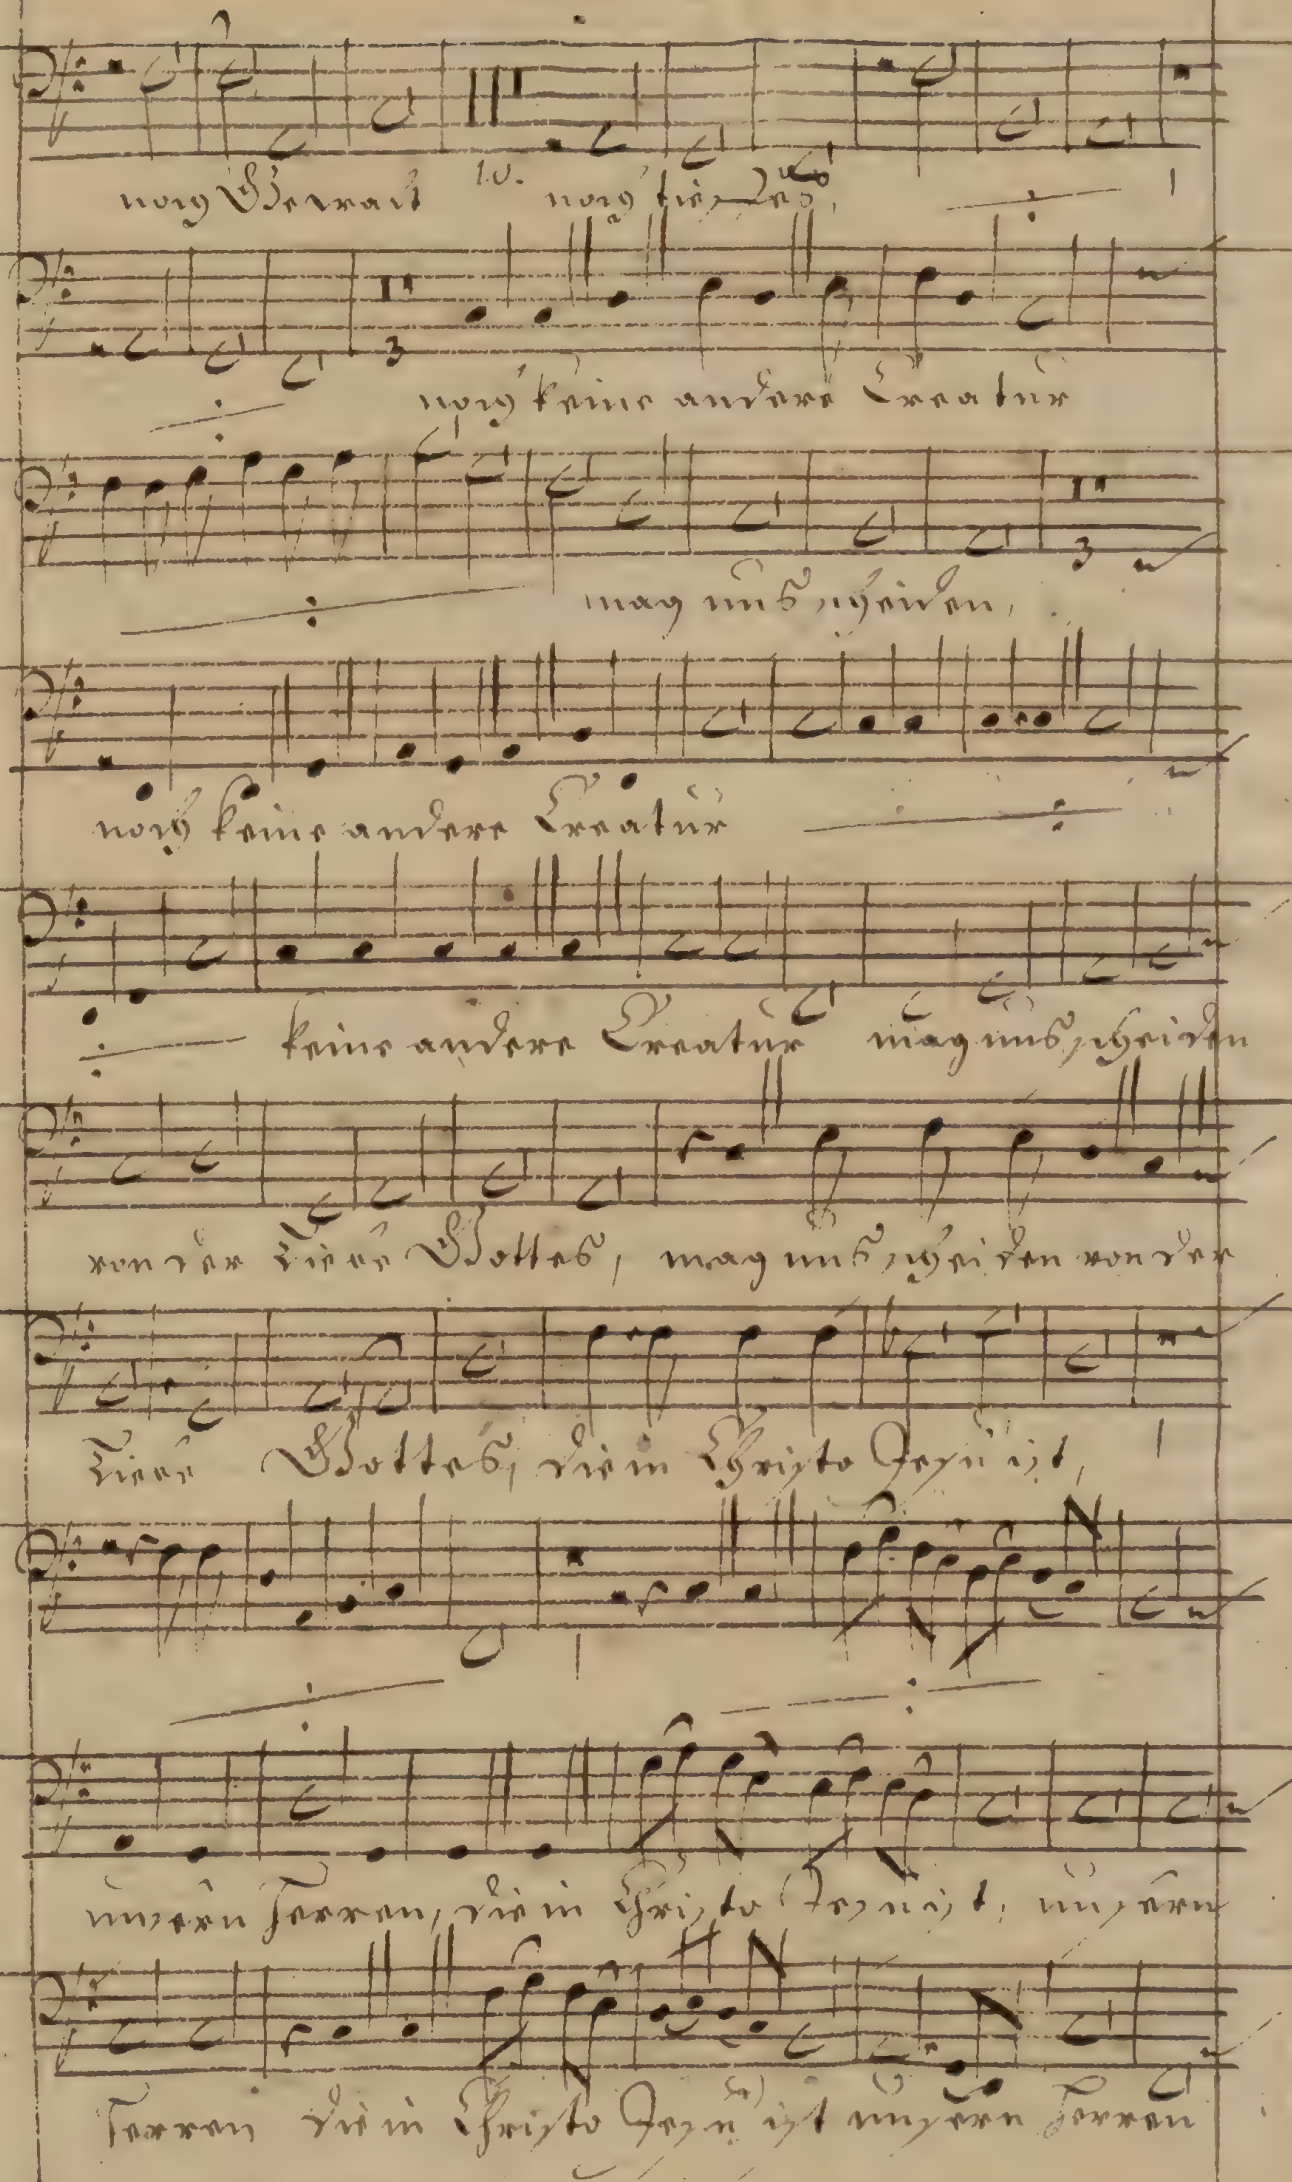 noch Gewalt 10. noch tieffes,
3
noch keine andere Creatur
3
mag uns scheiden,
noch keine andere Creatur
keine andere Creatur mag uns scheiden
von der Liebe Gottes, mag uns scheiden von der
Liebe Gottes, die in Christo Jesu ist,
unsern Herren, die in Christo Jesu ist, unsern
Herren die in Christo Jesu ist unsern Herren